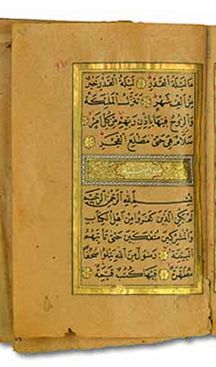 مَا لَيْلَةُ الْقَدْرِ لَيْلَةُ الْقَدْرِ خَيْرٌ
مِنْ اَلْفِ شَهْرٍ تَنَزَّلُ الْمَلٰٓئِكَةُ
وَالرُّوحُ فِيهَا بِاِذْنِ رَبِّهِمْ مِنْ كُلِّ اَمْرٍ
سَلَامٌ هِىَ حَتّٰى مَطْلَعِ الْفَجْرِ
بِسْمِ اللّٰهِ الرَّحْمٰنِ الرَّحِيمِ
لَمْ يَكُنِ الَّذِينَ كَفَرُوا مِنْ اَهْلِ الْكِتَابِ
وَالْمُشْرِكِينَ مُنْفَكِّينَ حَتّٰى تَاْتِيَهُمُ
الْبَيِّنَةُ رَسُولٌ مِنَ اللّٰهِ يَتْلُوا صُحُفًا
مُطَهَّرَةً فِيهَا كُتُبٌ قَيِّمَةٌ